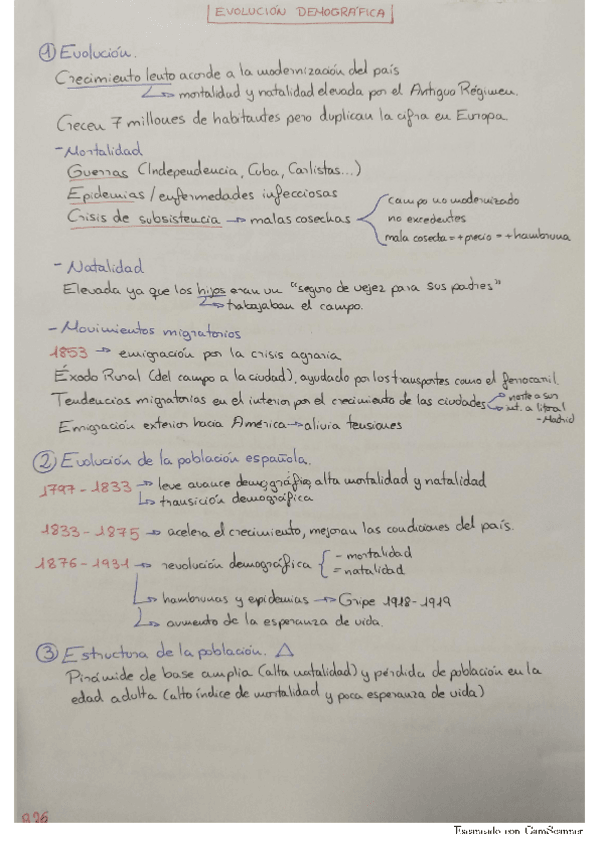 EVOLUCIÓN DEMOGRÁFICA
① Evolución.
Crecimiento lento acorde a la modernización del país
↳ mortalidad y natalidad elevada por el Antiguo Régimen.
Crecen 7 millones de habitantes pero duplican la cifra en Europa
- Mortalidad
Guerras (Independencia, Cuba, Carlistas...)
Epidemias / enfermedades infecciosas
Crisis de subsistencia → malas cosechas
campo no modernizado
no excedentes
mala cosecha = + precio = + hambruna
- Natalidad
Elevada ya que los hijos eran un "seguro de vejez para sus padres"
↳ trabajaban el campo.
- Movimientos migratorios
1853 → emigración por la crisis agraria
Éxodo Rural (del campo a la ciudad), ayudado por los transportes como el ferrocarril
Tendencias migratorias en el interior por el crecimiento de las ciudades
→ norte a sur
→ int. a litoral
- Madrid
Emigración exterior hacia América → alivia tensiones
② Evolución de la población española.
1797 - 1833 → leve avance demográfico, alta mortalidad y natalidad
↳ transición demográfica
1833 - 1875 → acelera el crecimiento, mejoran las condiciones del país.
1876 - 1931 → revolución demográfica { - mortalidad
= natalidad
↳ hambrunas y epidemias → Gripe 1918-1919
↳ aumento de la esperanza de vida.
③ Estructura de la población. △
Pirámide de base amplia (alta natalidad) y pérdida de población en la
edad adulta (alto índice de mortalidad y poca esperanza de vida)
Escaneado con CamScanner